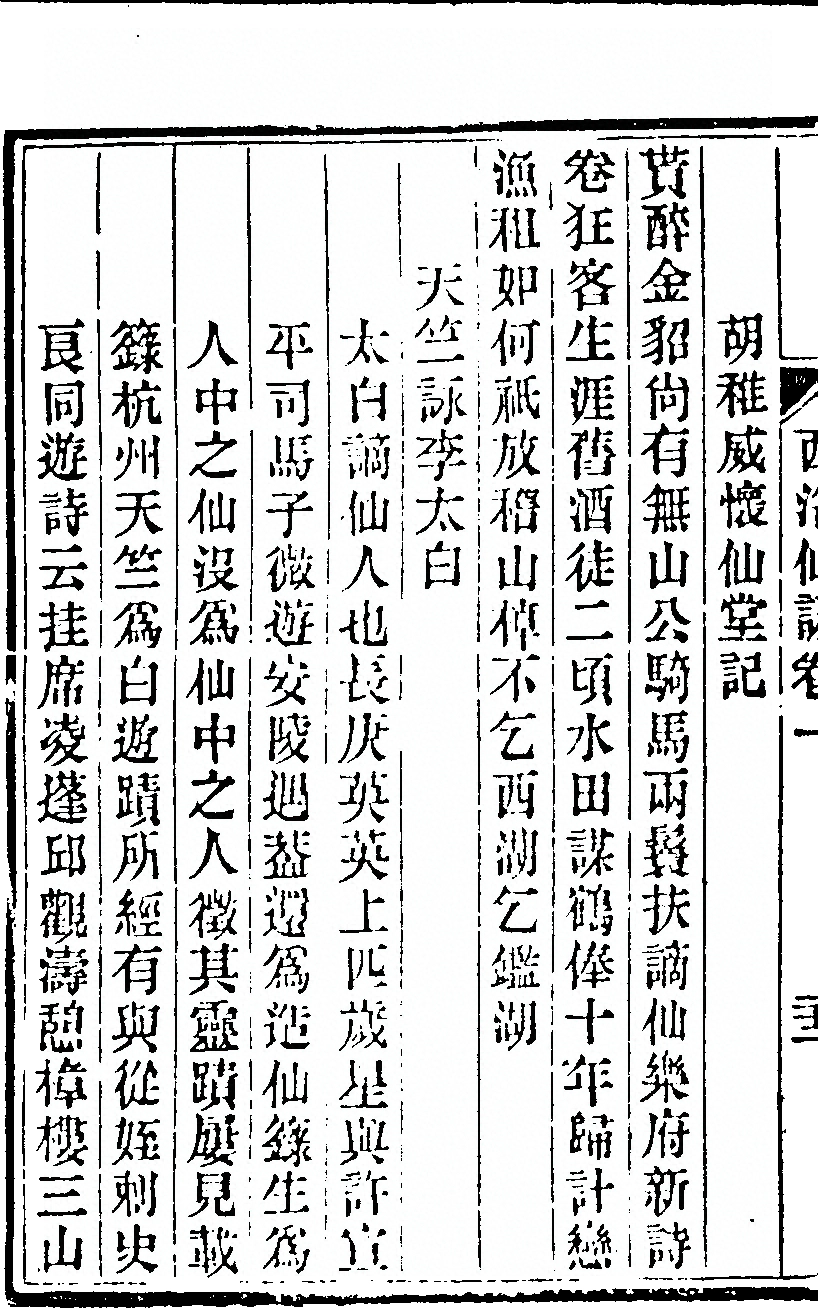 西泠仙詠卷一
胡稚威懷仙堂記
貰醉金貂尚有無山公騎馬兩鬟扶謫仙樂府新詩
卷狂客生涯舊酒徒二頃水田謀鶴俸十年歸計戀
漁租如何祇放稽山倬不乞西湖乞鑑湖
天竺詠李太白
太白謫仙人也長庚英英上匹歲星與許宣
平司馬子微遊安陵遇葢還爲造仙籙生爲
人中之仙沒爲仙中之人徵其靈蹟屢見載
籙杭州天竺爲白遊蹟所經有與從姪刺史
良同遊詩云挂席凌蓬邱觀濤憩樟樓三山